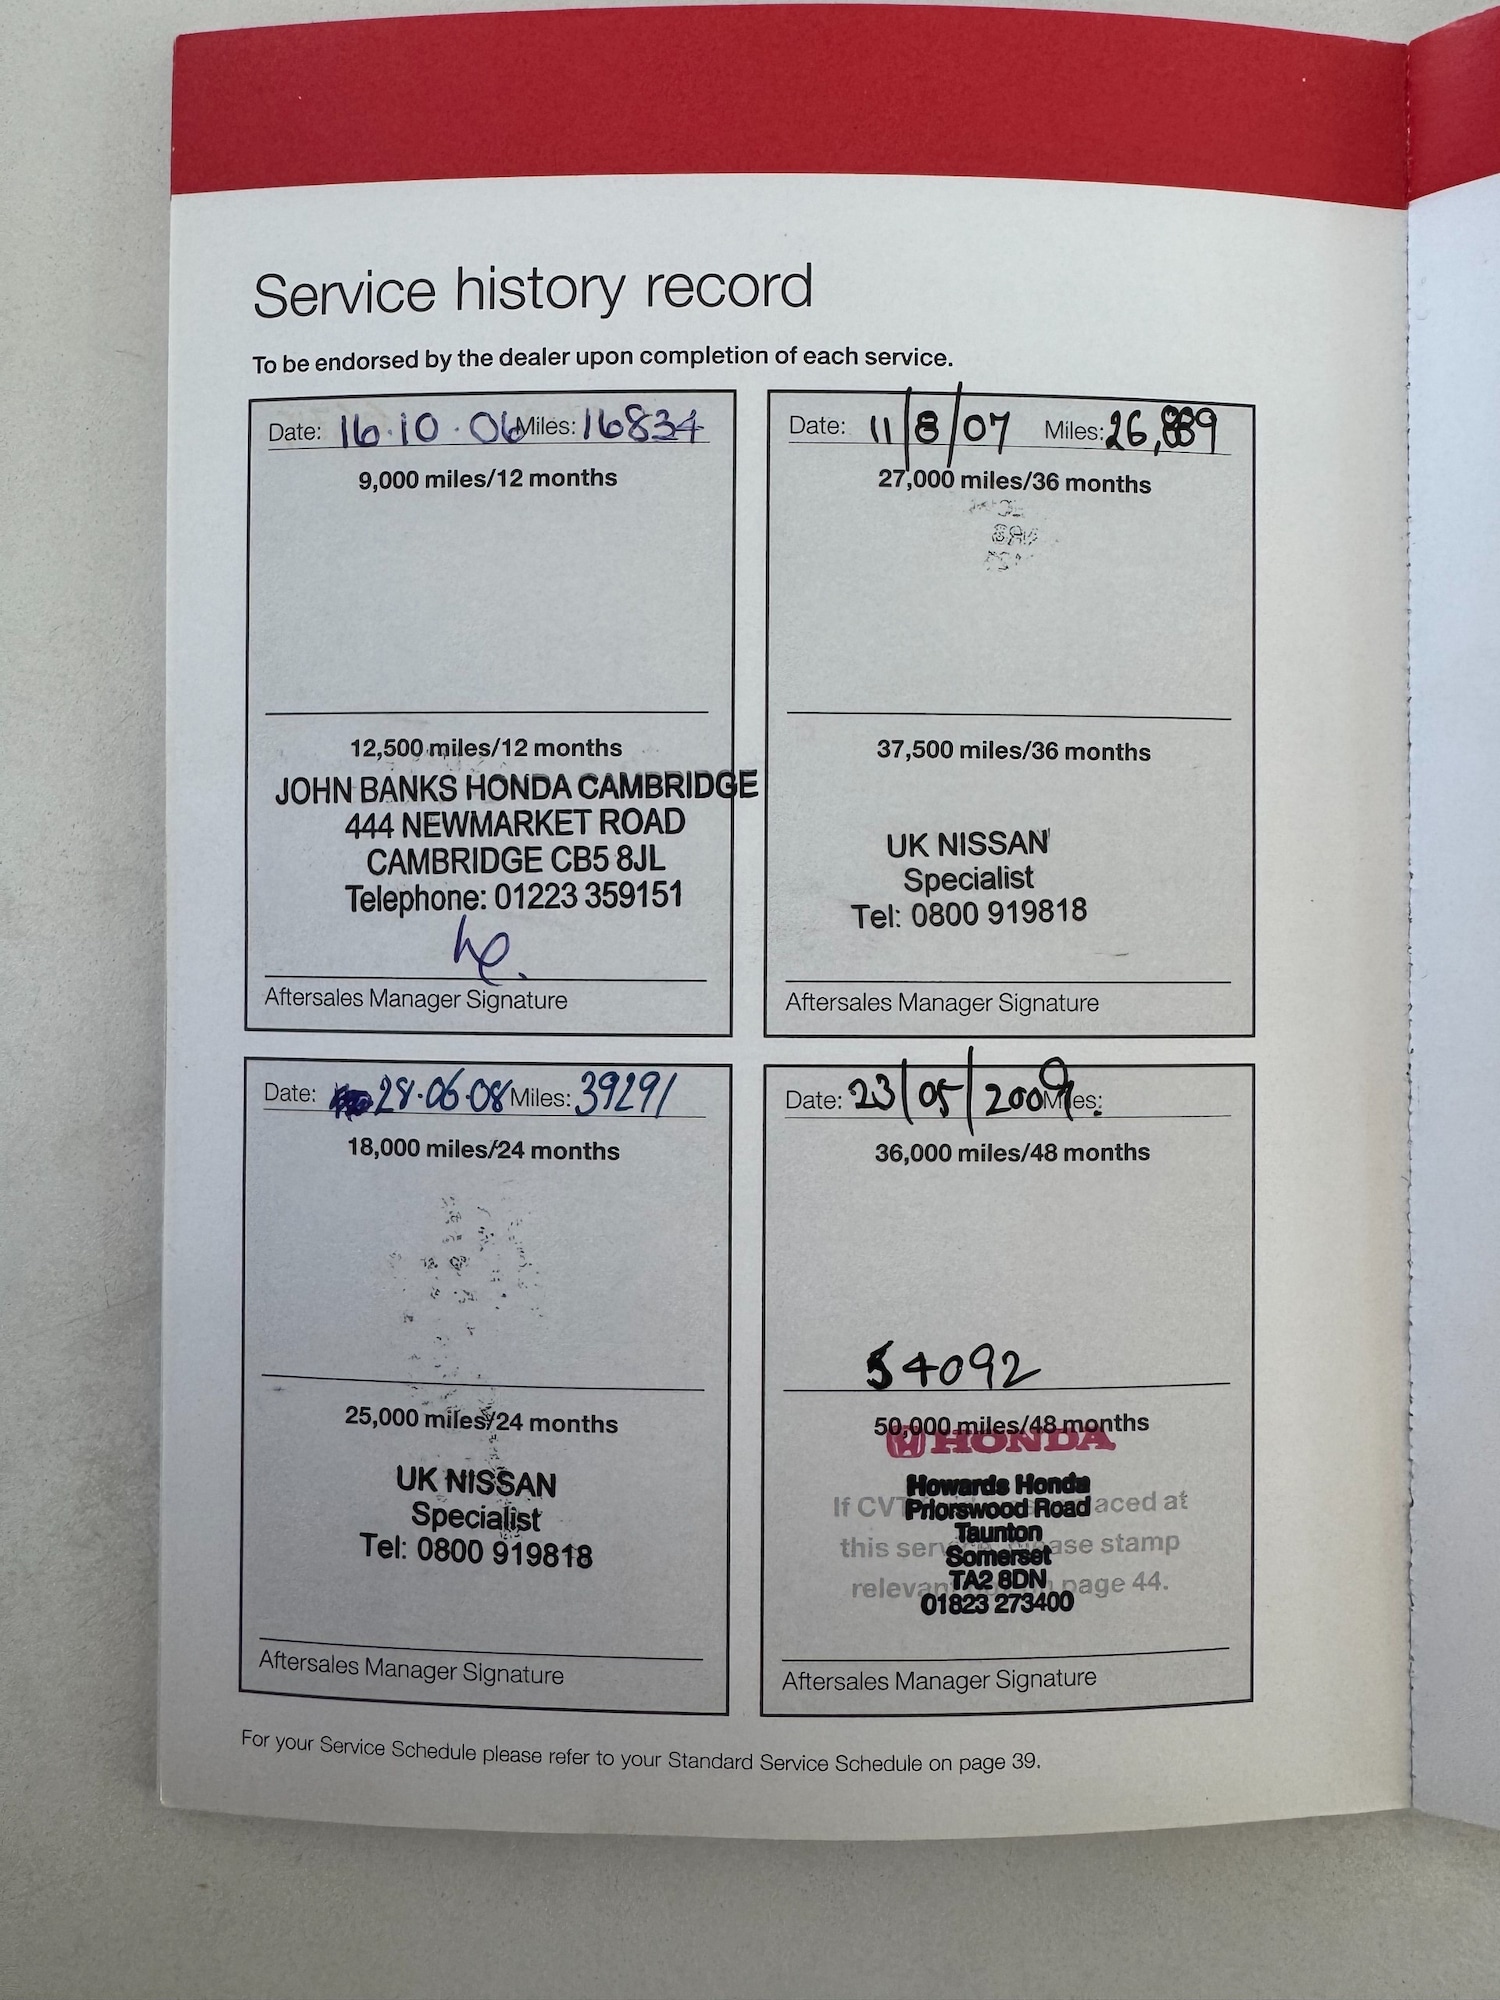 Service history record
To be endorsed by the dealer upon completion of each service.
Date: 16.10.06 Miles: 16834
9,000 miles/12 months
12,500 miles/12 months
JOHN BANKS HONDA CAMBRIDGE
444 NEWMARKET ROAD
CAMBRIDGE CB5 8JL
Telephone: 01223 359151
Aftersales Manager Signature
Date: 11/8/07 Miles:
27,000 miles/36 months
37,500 miles/36 months
UK NISSAN
Specialist
Tel: 0800 919818
Aftersales Manager Signature
Date: 28.06.08 Miles: 39291
18,000 miles/24 months
25,000 miles/24 months
UK NISSAN
Specialist
Tel: 0800 919818
Aftersales Manager Signature
Date: 23/05/2009 Miles:
36,000 miles/48 months
54092
50,000 miles/48 months
HONDA
Howards Honda
Priorswood Road
Taunton
Somerset
TA2 8DN
01823 273400
If CVT aced at
this stamp
page 44.
Aftersales Manager Signature
For your Service Schedule please refer to your Standard Service Schedule on page 39.